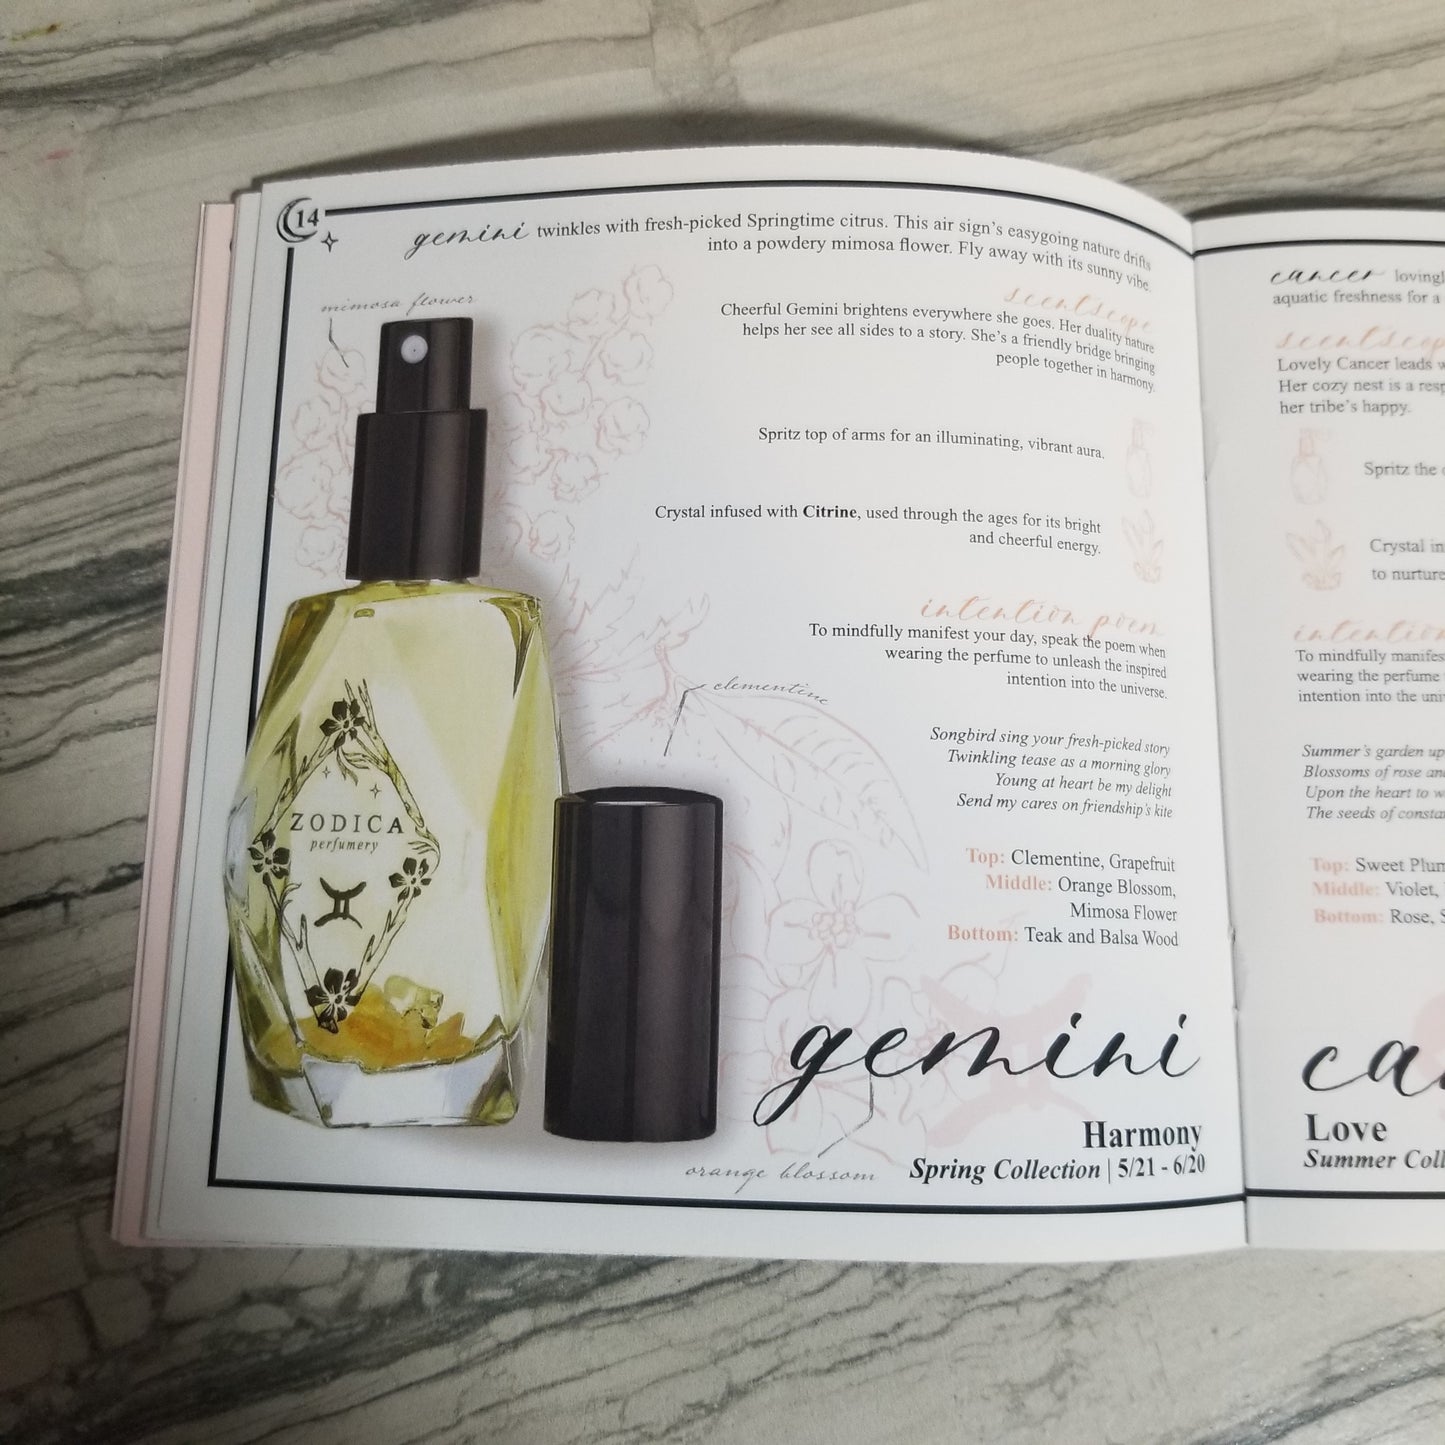 14
gemini twinkles with fresh-picked Springtime citrus. This air sign's easygoing nature drifts
into a powdery mimosa flower. Fly away with its sunny vibe.
mimosa flower
scentscope
Cheerful Gemini brightens everywhere she goes. Her duality nature
helps her see all sides to a story. She's a friendly bridge bringing
people together in harmony.
Spritz top of arms for an illuminating, vibrant aura.
Crystal infused with Citrine, used through the ages for its bright
and cheerful energy.
intention poem
To mindfully manifest your day, speak the poem when
wearing the perfume to unleash the inspired
intention into the universe.
clementine
Songbird sing your fresh-picked story
Twinkling tease as a morning glory
Young at heart be my delight
Send my cares on friendship's kite
ZODICA
perfumery
Top: Clementine, Grapefruit
Middle: Orange Blossom,
Mimosa Flower
Bottom: Teak and Balsa Wood
gemini
Harmony
Spring Collection | 5/21 - 6/20
orange blossom
cancer
aquatic freshness for a
Lovely Cancer leads
Her cozy nest is a
her tribe's happy.
Spritz the
Crystal
to nurture
To mindfully
wearing the perfume
intention into the
Summer's garden up
Blossoms of rose
Upon the heart to
The seeds of
Top: Sweet
Middle: Violet,
Bottom: Rose,
Love
Summer